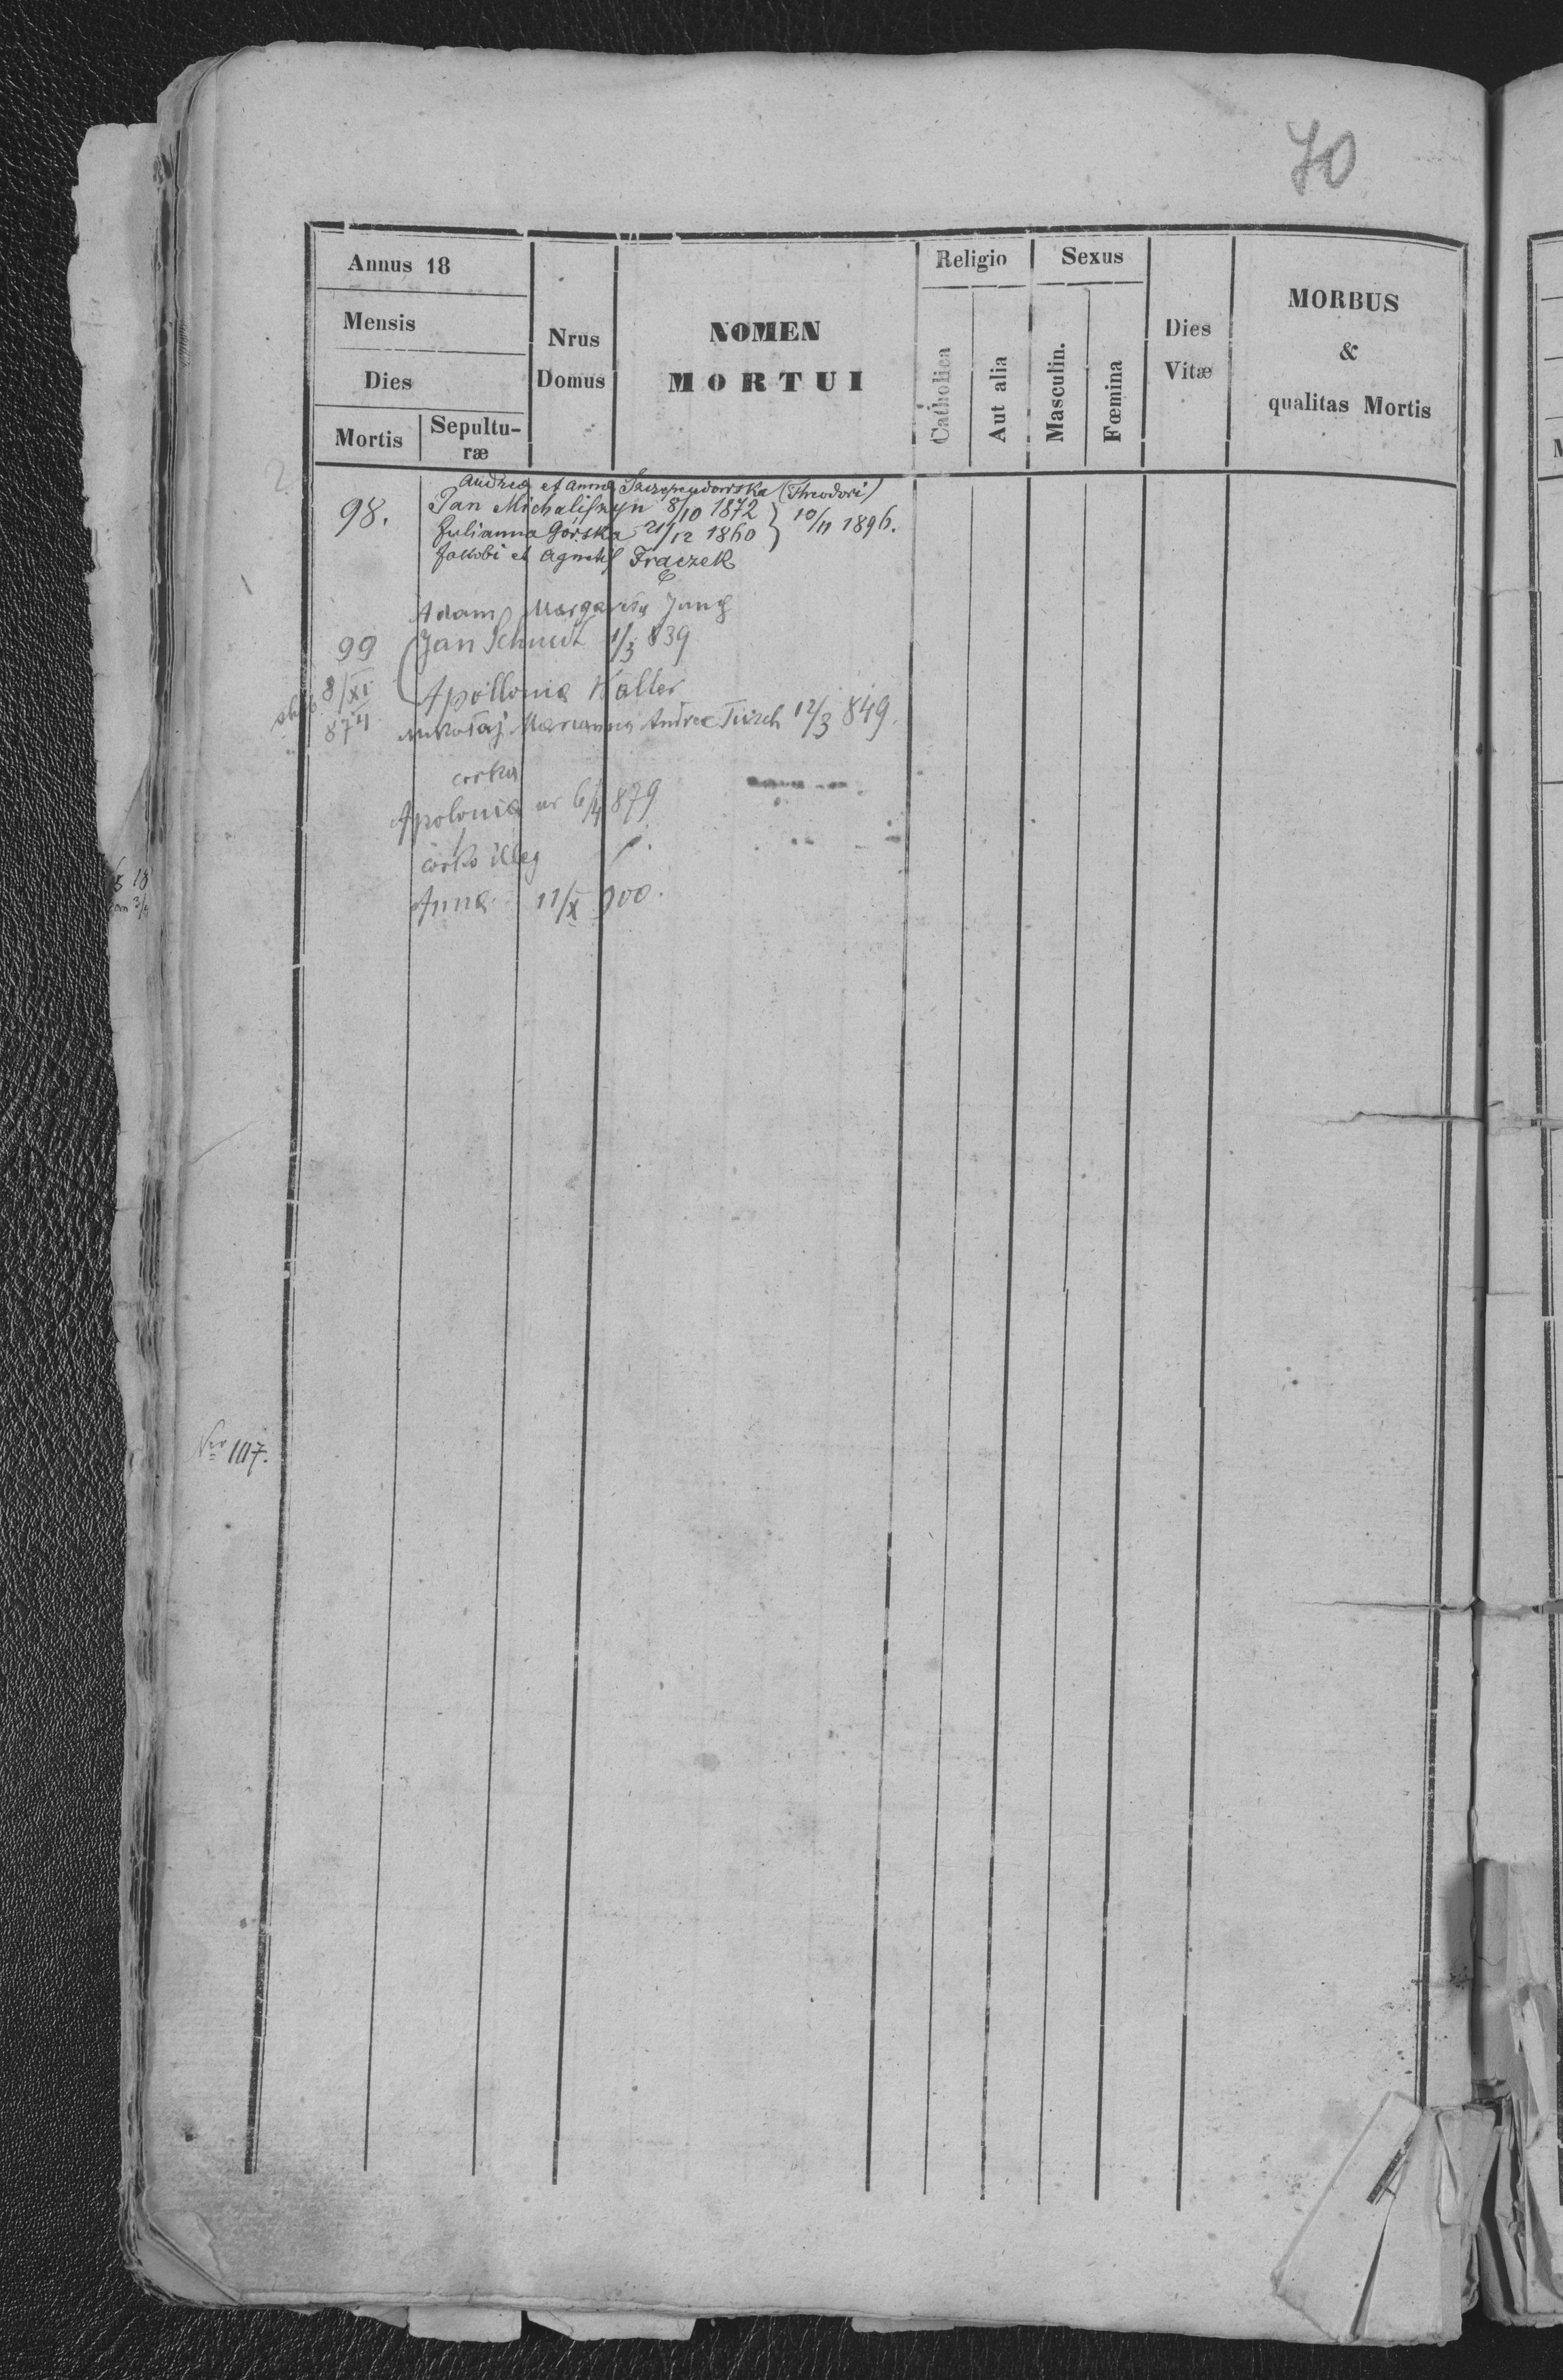 70
Annus 18
Mensis
Dies
Mortis
Sepultu-
ræ
Nrus
Domus
NOMEN
MORTUI
Religio
Catholica
Aut alia
Sexus
Masculin.
Fœmina
Dies
Vitæ
MORBUS
&
qualitas Mortis
Andrea et Anna (Theodori)
98. Jan Michaliszyn 8/10 1872 } 10/11 1896.
Julianna Górska 21/12 1860
Jakobi et Agnetis Frączek
Adam Margareta Jung
99 Jan Schmidt 1/3 839
8/XI Apollonia Walter
874 Mikołaj Marianna Andree 12/3 849.
córka
Apolonia ur 6/4 879
córka illeg
Anna 11/X 900.
Nro 107.